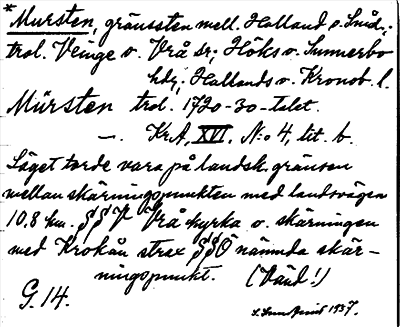 * Mursten, gränssten mell. Halland o. Små.;
trol. Veinge o. Vrå sr; Höks o. Sunnerbo
hdr; Hallands o. Kronob. l.
Mürsten trol. 1720-30-talet.
—. KrA, XVI, N:o 4, lit. b.
Läget torde vara på landsk. gränsen
mellan skärningspunkten med landsvägen
10,8 km. SSV Vrå kyrka o. skärningen
med Krokån strax SSO nämnda skär-
ningspunkt. (Vänd!)
G. 14.
1937.